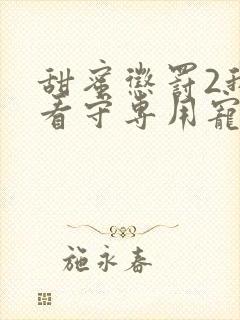 甜蜜惩罚2我
看守专用宠
施永春